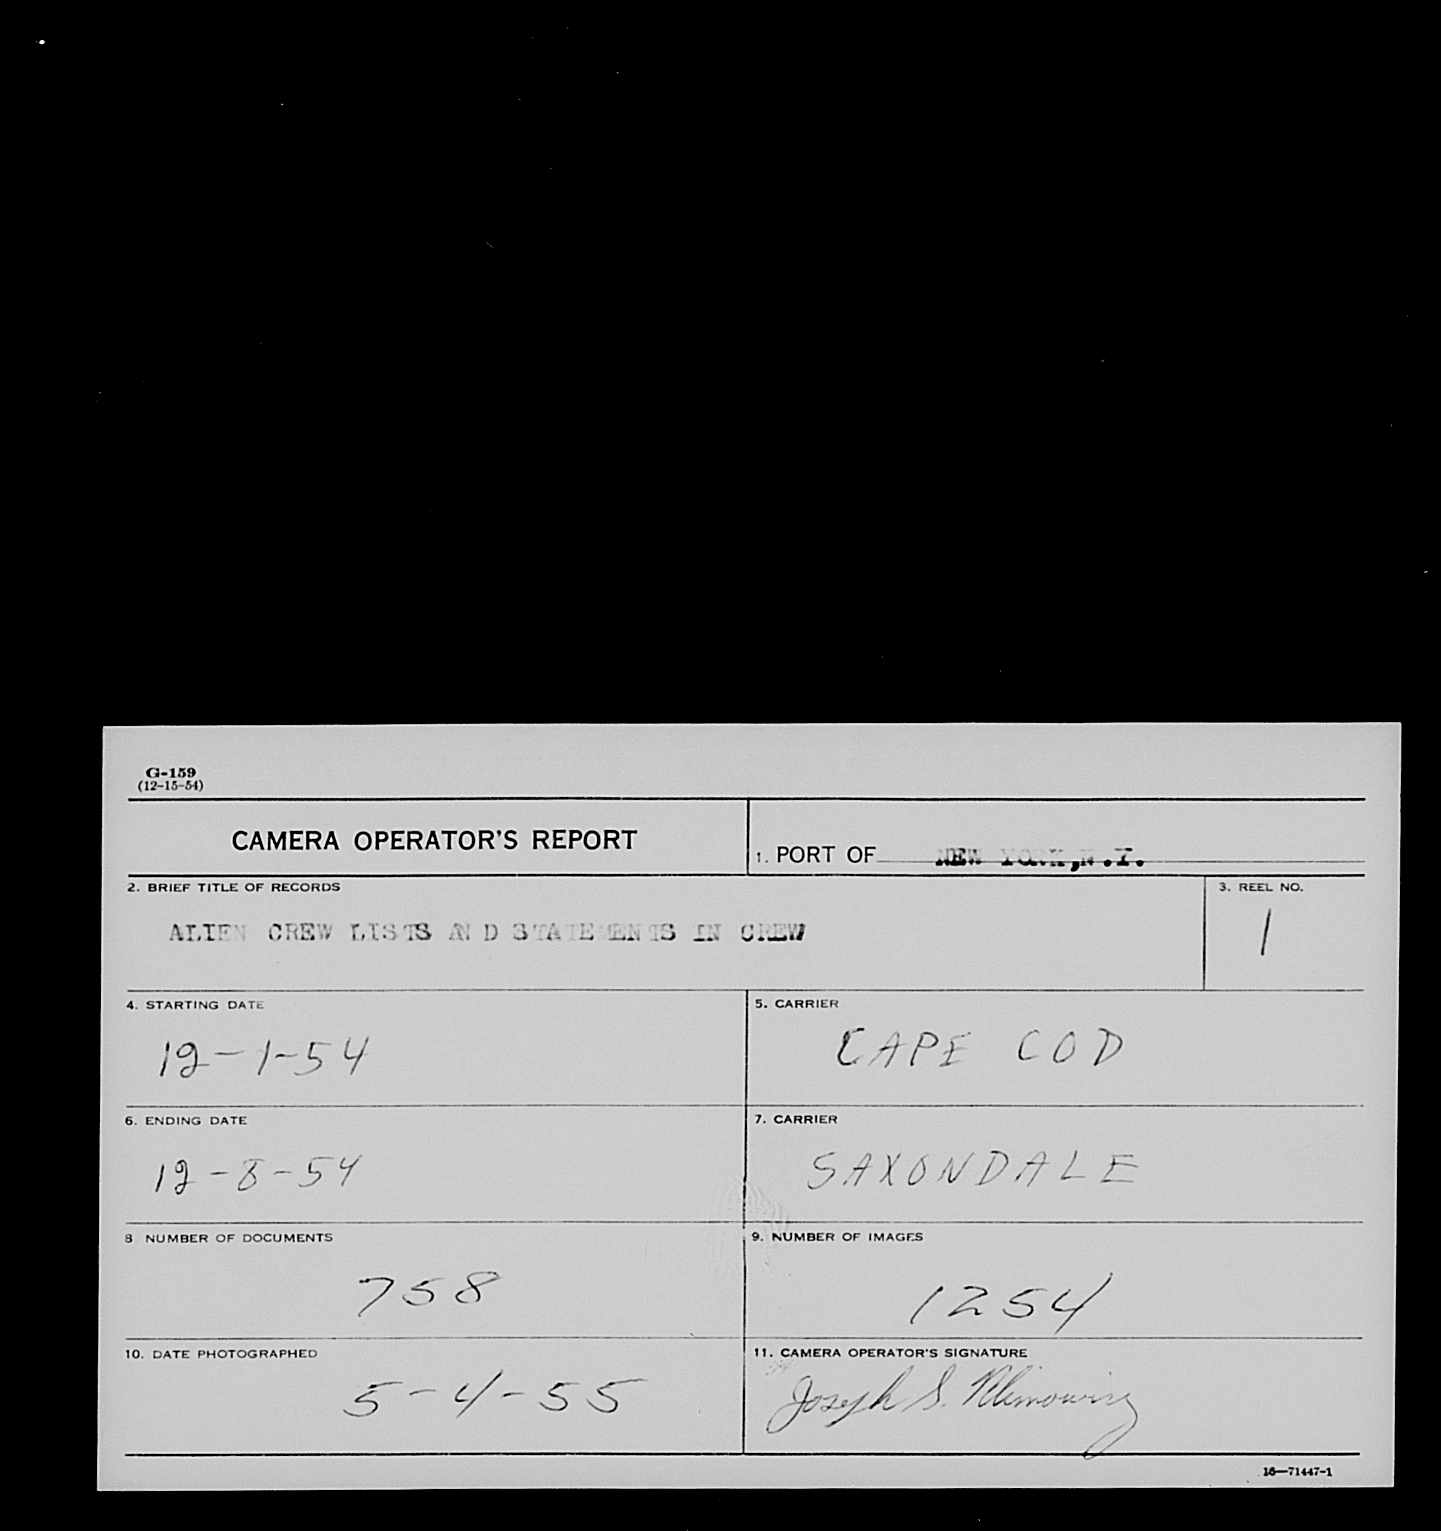 G-159
(12-15-54)
CAMERA OPERATOR'S REPORT
1. PORT OF NEW YORK, N.Y.
2. BRIEF TITLE OF RECORDS
ALIEN CREW LISTS AND STATEMENTS IN CREW
3. REEL NO.
1
4. STARTING DATE
12-1-54
5. CARRIER
CAPE COD
6. ENDING DATE
12-8-54
7. CARRIER
SAXONDALE
8 NUMBER OF DOCUMENTS
758
9. NUMBER OF IMAGES
1254
10. DATE PHOTOGRAPHED
5-4-55
11. CAMERA OPERATOR'S SIGNATURE
Joseph S.
16—71447-1